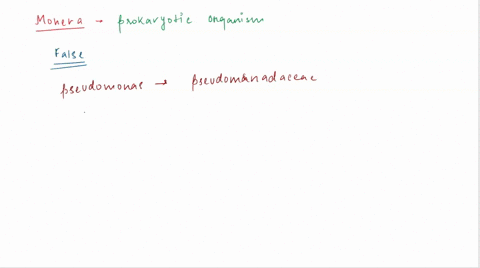 Monera → prokaryotic organism
False
pseudomonas → pseudomonadaceae